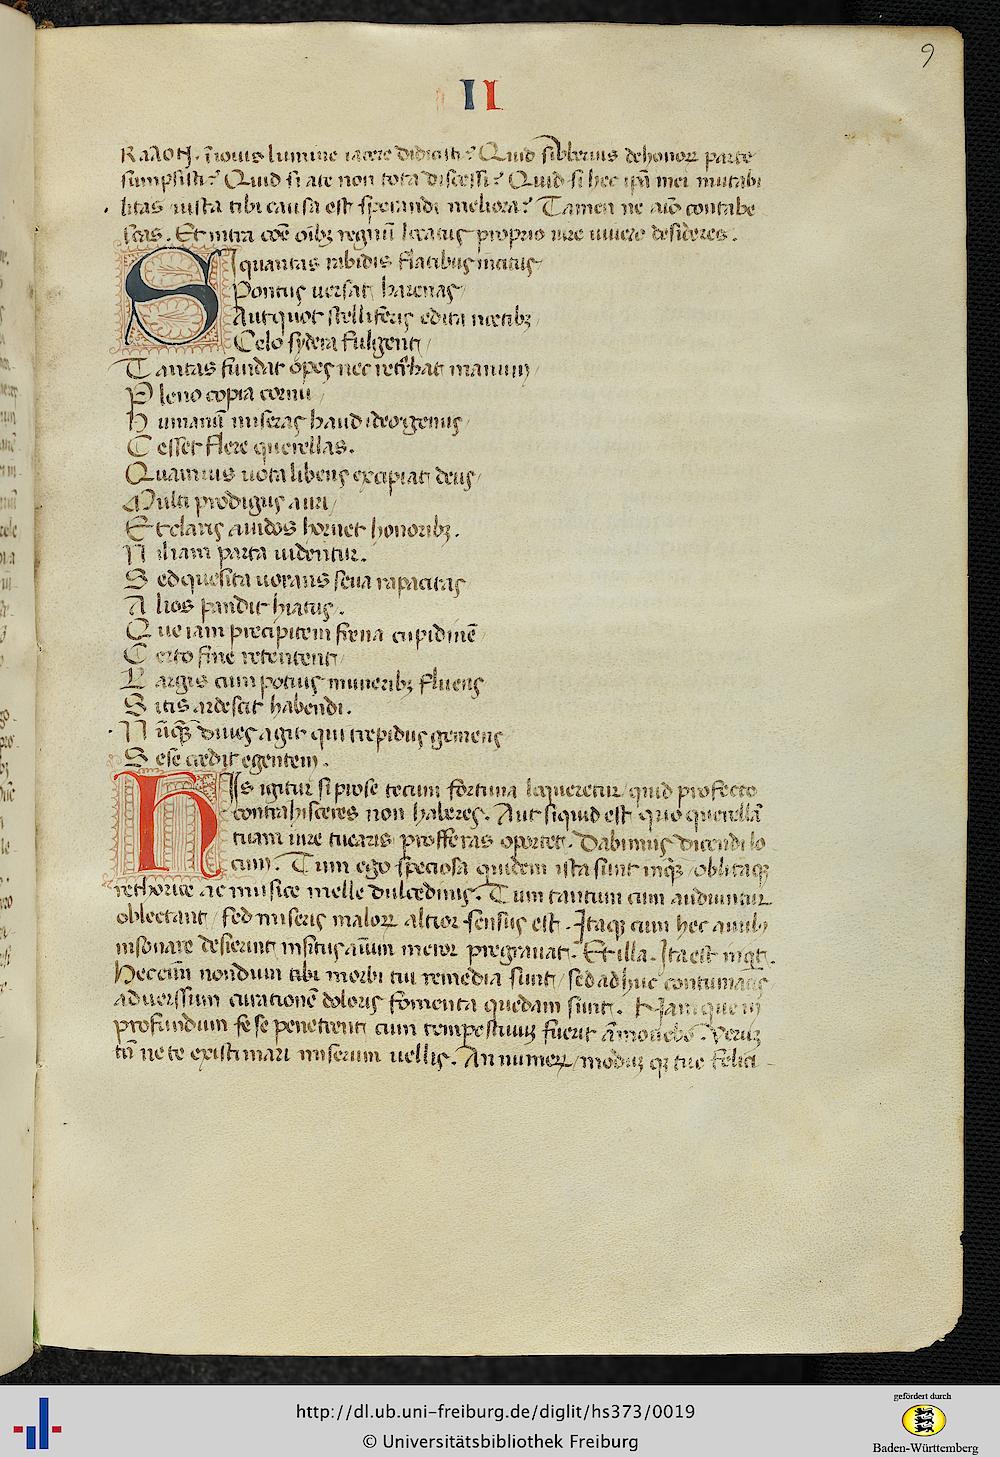 9
II
in Iouis lumine iacere didicisti? Quid si uberius de bonor parte
sumpsisti? Quid si a te non tota discessi? Quid si hec ipa mei mutabi
litas iusta tibi causa est sperandi meliora? Tamen ne aio contabe
scas. Et intra coe oibz regnu locatus proprio iure uiuere desideres.
SI quantas rabidis flatibus incitus
Pontus uersat harenas
Aut quot stelliferis edita noctibz
Celo sydera fulgent
Tantas fundat opes nec retrhat manum
Pleno copia cornu
Humanu miseras haud ideo genus
Cesset flere querellas.
Quamuis uota libens excipiat deus
Multi prodigus auri
Et claris auidos hornet honoribz.
Nil iam parta uidentur.
Sed quesita uorans seua rapacitas
Alios pandit hiatus.
Que iam precipitem frena cupidine
Certo fine retentent
Largis cum potius muneribz fluens
Sitis ardescit habendi.
Nuqz diues agit qui trepidus gemens
Sese credit egentem.
HIs igitur si p se tecum fortuna loqueretur quid profecto
contra hisceres non haberes. Aut si quid est quo querella
tuam iure tuearis profferas oportet. Dabimus dicendi lo
cum. Tum ego speciosa quidem ista sunt inqz oblitaqz
rethorice ac musice melle dulcedinis. Tum tantum cum audiuntur
oblectant sed miseris malor altior sensus est. Itaqz cum hec auribz
insonare desierint insitus aium meror pregrauat. Et illa. Ita est inqt.
Hec eim nondum tibi morbi tui remedia sunt sed adhuc contumacis
aduerssum curatione doloris fomenta quedam sunt. Nam que in
profundum sese penetrent cum tempestiuuz fuerit amouebo. Veruz
tn ne te existimari miserum uellis. An numer modumqz tue felici
http://dl.ub.uni-freiburg.de/diglit/hs373/0019
© Universitätsbibliothek Freiburg
gefördert durch
Baden-Württemberg